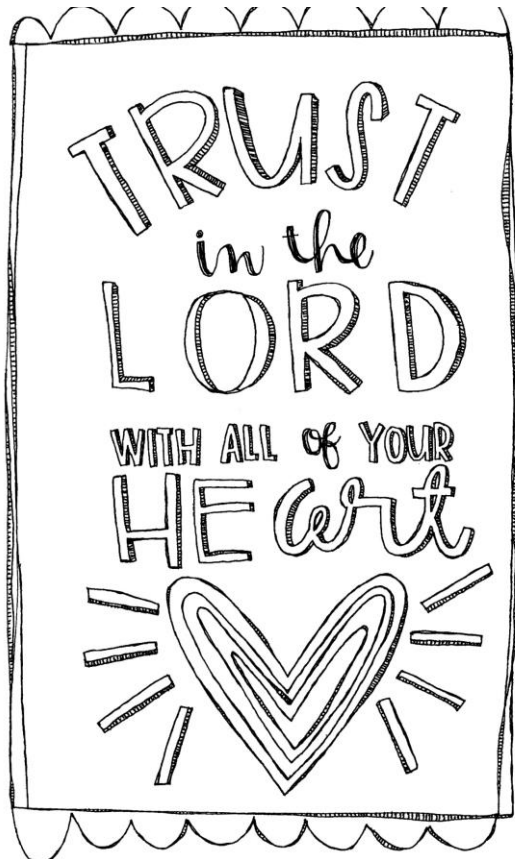 TRUST
in the
LORD
WITH ALL of YOUR
HEart